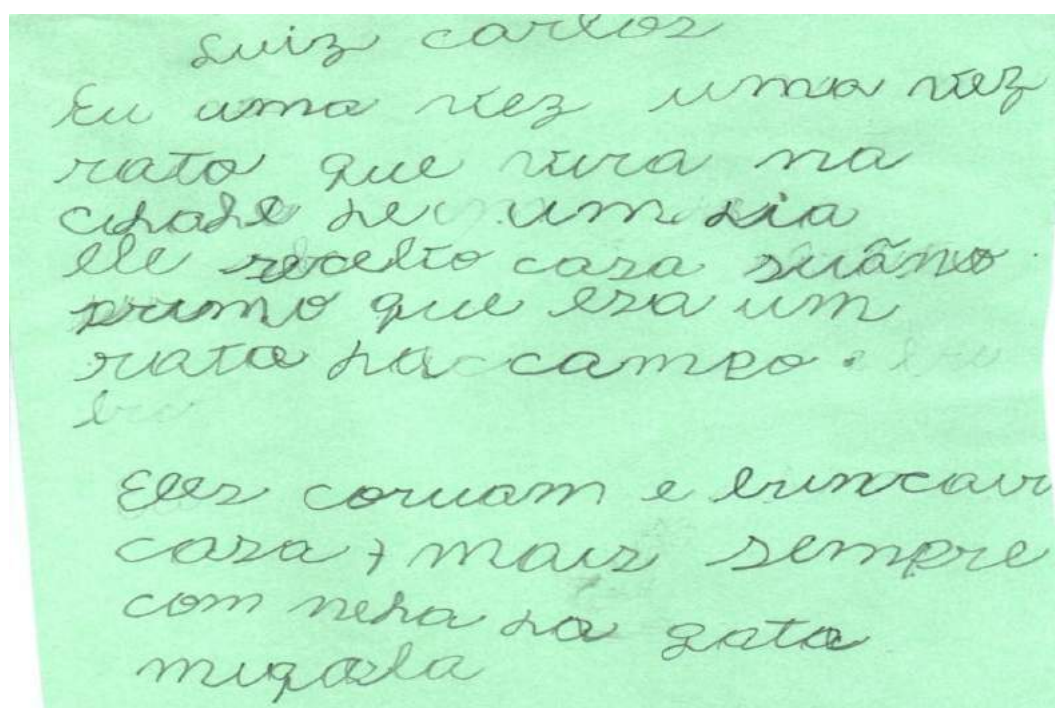 Luiz carlos
Eu uma vez uma vez
rato que vivia na
cidade de um dia
ele recebeo casa
primo que era um
rato do campo.
Eles corriam e brincavi
casa, mais sempre
com meda do gato